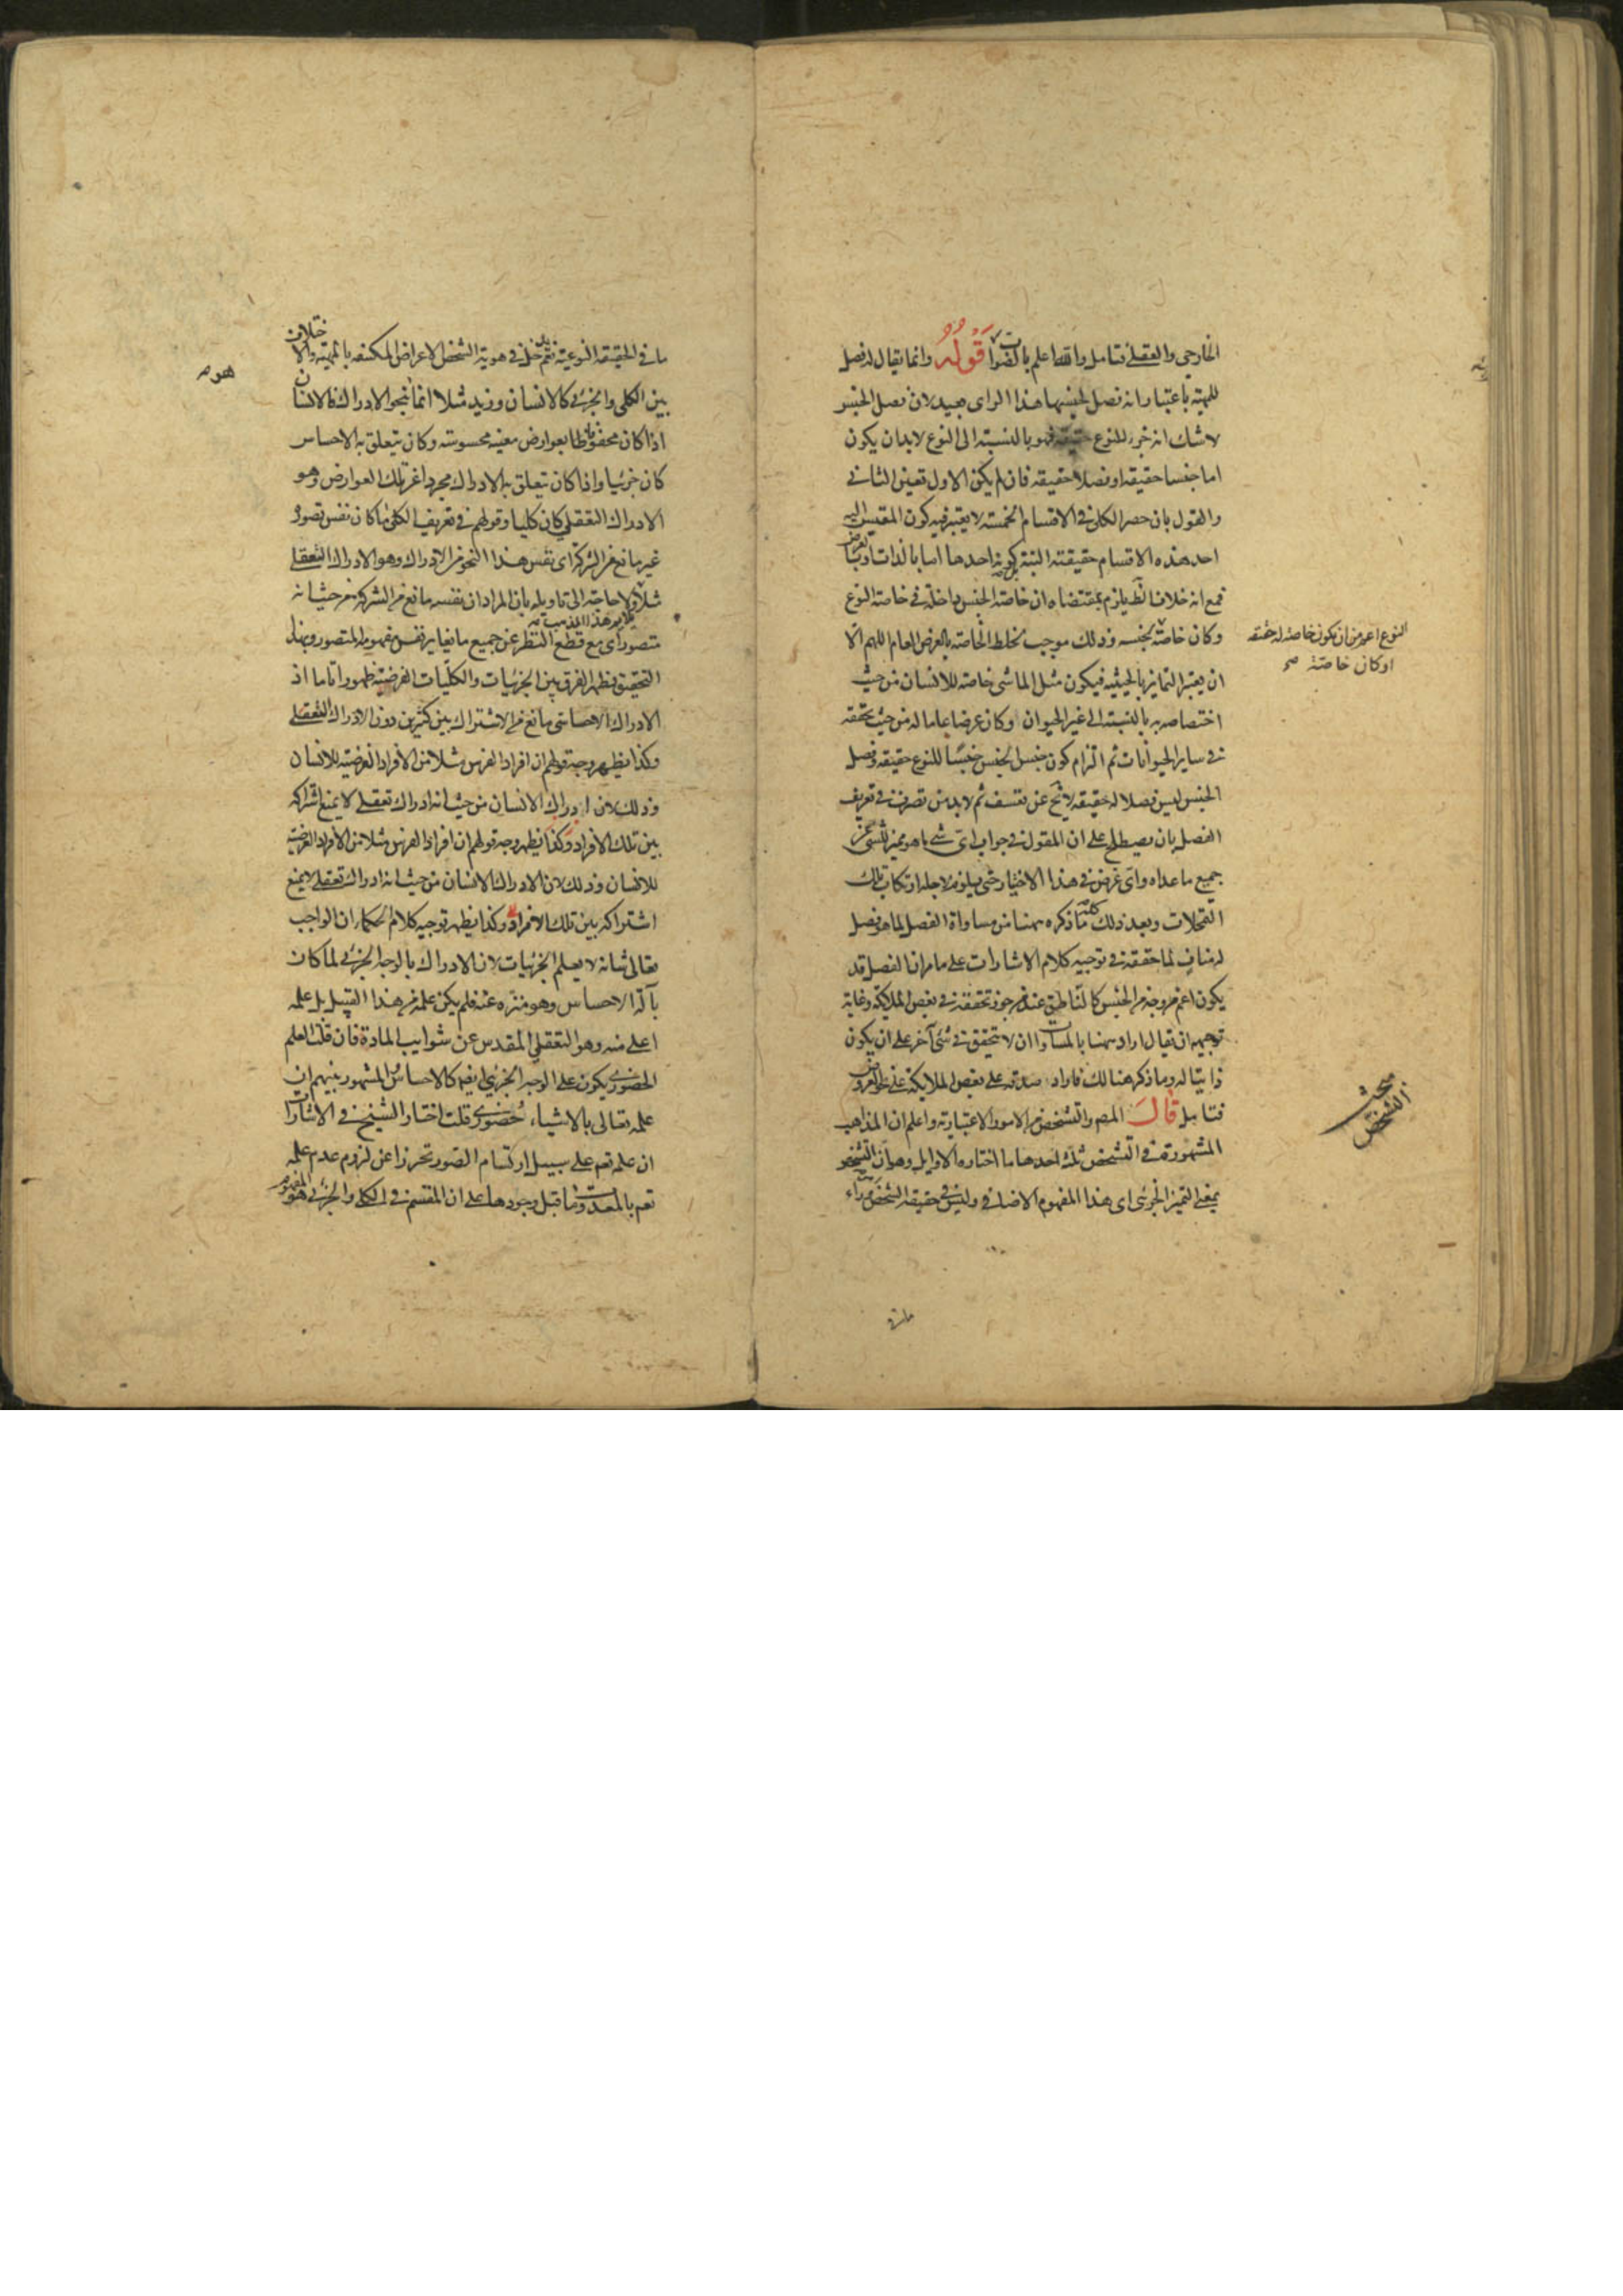 الخارجي والعقلي فتامل والله اعلم بالصواب قوله وانما يقال له فصل
للمهية باعتبار انه فصل لجنسها هذا الراى بعيد لان فصل الجنس
لا شك انه جزء للنوع حقيقة فهو بالنسبة الى النوع لابد ان يكون
اما جنسا حقيقة او فصلا حقيقة فان لم يكن الاول تعين الثاني
والقول بان حصر الكلي في الاقسام الخمسة لا يعتبر فيه كون المقيس اليه
احد هذه الاقسام حقيقته البتة بل كونه احدها اما بالذات او بالعرض
فمع انه خلاف الظ يلزم بمقتضاه ان خاصة الجنس داخلة في خاصة النوع
النوع اعم من ان تكون خاصة له حقيقة
او كان خاصة صح
وكان خاصة لجنسه وذلك موجب لخلط الخاصة بالعرض العام اللهم الا
ان يعتبر التمايز بالحيثية فيكون مثل الماشي خاصة للانسان من حيث
اختصاصه به بالنسبة الى غير الحيوان وكان عرضا عاما له من حيث تحققه
في ساير الحيوانات ثم التزام كون جنس الجنس جنسا للنوع حقيقة وفصل
الجنس ليس فصلا له حقيقة لا يخ عن تعسف ثم لابد من تصرف في تعريف
الفصل بان يصطلح على ان المقول في جواب اى شي ما هو مميز للشي عن
جميع ما عداه واى غرض في هذا الاختيار حتى يلزم لاجله ارتكاب تلك
التمحلات وبعد ذلك كله ما ذكره ههنا من مساواة الفصل لما هو فصل
له مناف لما حققه في توجيه كلام الاشارات على ما مر ان الفصل قد
يكون اعم من وجه من الجنس كالناطق عند من جوز تحققه في بعض الملايكة وغاية
توجيهه ان يقال اراد ههنا بالمساواة ان لا تحقق في شئ آخر على ان يكون
ذاتيا له وما ذكر هنالك فاراد صدقه على بعض الملايكة على نحو العروض
فتامل قال المص والتشخص من الامور الاعتبارية واعلم ان المذاهب
مبحث
التشخص
المشهورة في التشخص ثلثة احدها ما اختاره الاوايل وهو ان التشخص
بمعنى التميز الجزئى اى هذا المفهوم الاضافي وليس في حقيقة الشخص وراء
ما في الحقيقة النوعية فلم يدخل في هوية الشخص الاعراض المكتنفه بالمهية والاختلاف
بين الكلي والجزئي كالانسان وزيد مثلا انما بنحو الادراك فالانسان
اذا كان محفوظا بعوارض معينه محسوسة وكان يتعلق به الاحساس
كان جزئيا واذا كان يتعلق به الادراك مجردا عن تلك العوارض وهو
الادراك التعقلي كان كليا وقولهم في تعريف الكلي ما كان نفس تصوره
غير مانع من الشركة اى نفس هذا النحو من الادراك وهو الادراك التعقلي
مثلا ولا حاجة الى تاويله بان المراد ان نفسه مانع من الشركة من حيث انه
متصور اى مع قطع النظر عن جميع ما يغاير نفس مفهومه المتصور وبهذا
التحقيق يظهر الفرق بين الجزئيات والكليات الفرضية ظهورا تاما اذ
الادراك الاحساسي مانع من الاشتراك بين كثيرين دون الادراك التعقلي
وكذا يظهر وجه قولهم ان افراد الفرس مثلا من الافراد الفرضية للانسان
وذلك لان ادراك الانسان من حيث انه ادراك تعقلي لا يمنع اشتراكه
بين تلك الافراد وكذا يظهر وجه قولهم ان افراد الفرس مثلا من الافراد الفرضية
للانسان وذلك لان الادراك الانسان من حيث انه ادراك تعقلي لا يمنع
اشتراكه بين تلك الافراد وكذا يظهر توجيه كلام الحكماء ان الواجب
تعالى شانه لا يعلم الجزئيات لان الادراك بالوجه الجزئي لما كان
بآلة الاحساس وهو منزه عنه فلم يكن علمه من هذا القبيل بل علمه
اعلى منه وهو التعقلي المقدس عن شوايب المادة فان قلت العلم
الحضوري يكون على الوجه الجزئي ايضا كالاحساس والمشهور بينهم ان
علمه تعالى بالاشياء حضوري قلت اختار الشيخ في الاشارات
ان علمه تعم على سبيل ارتسام الصور تحرزا عن لزوم عدم علمه
تعم بالمعدومات قبل وجودها على ان المقسم في الكلي والجزئي هو المفهوم